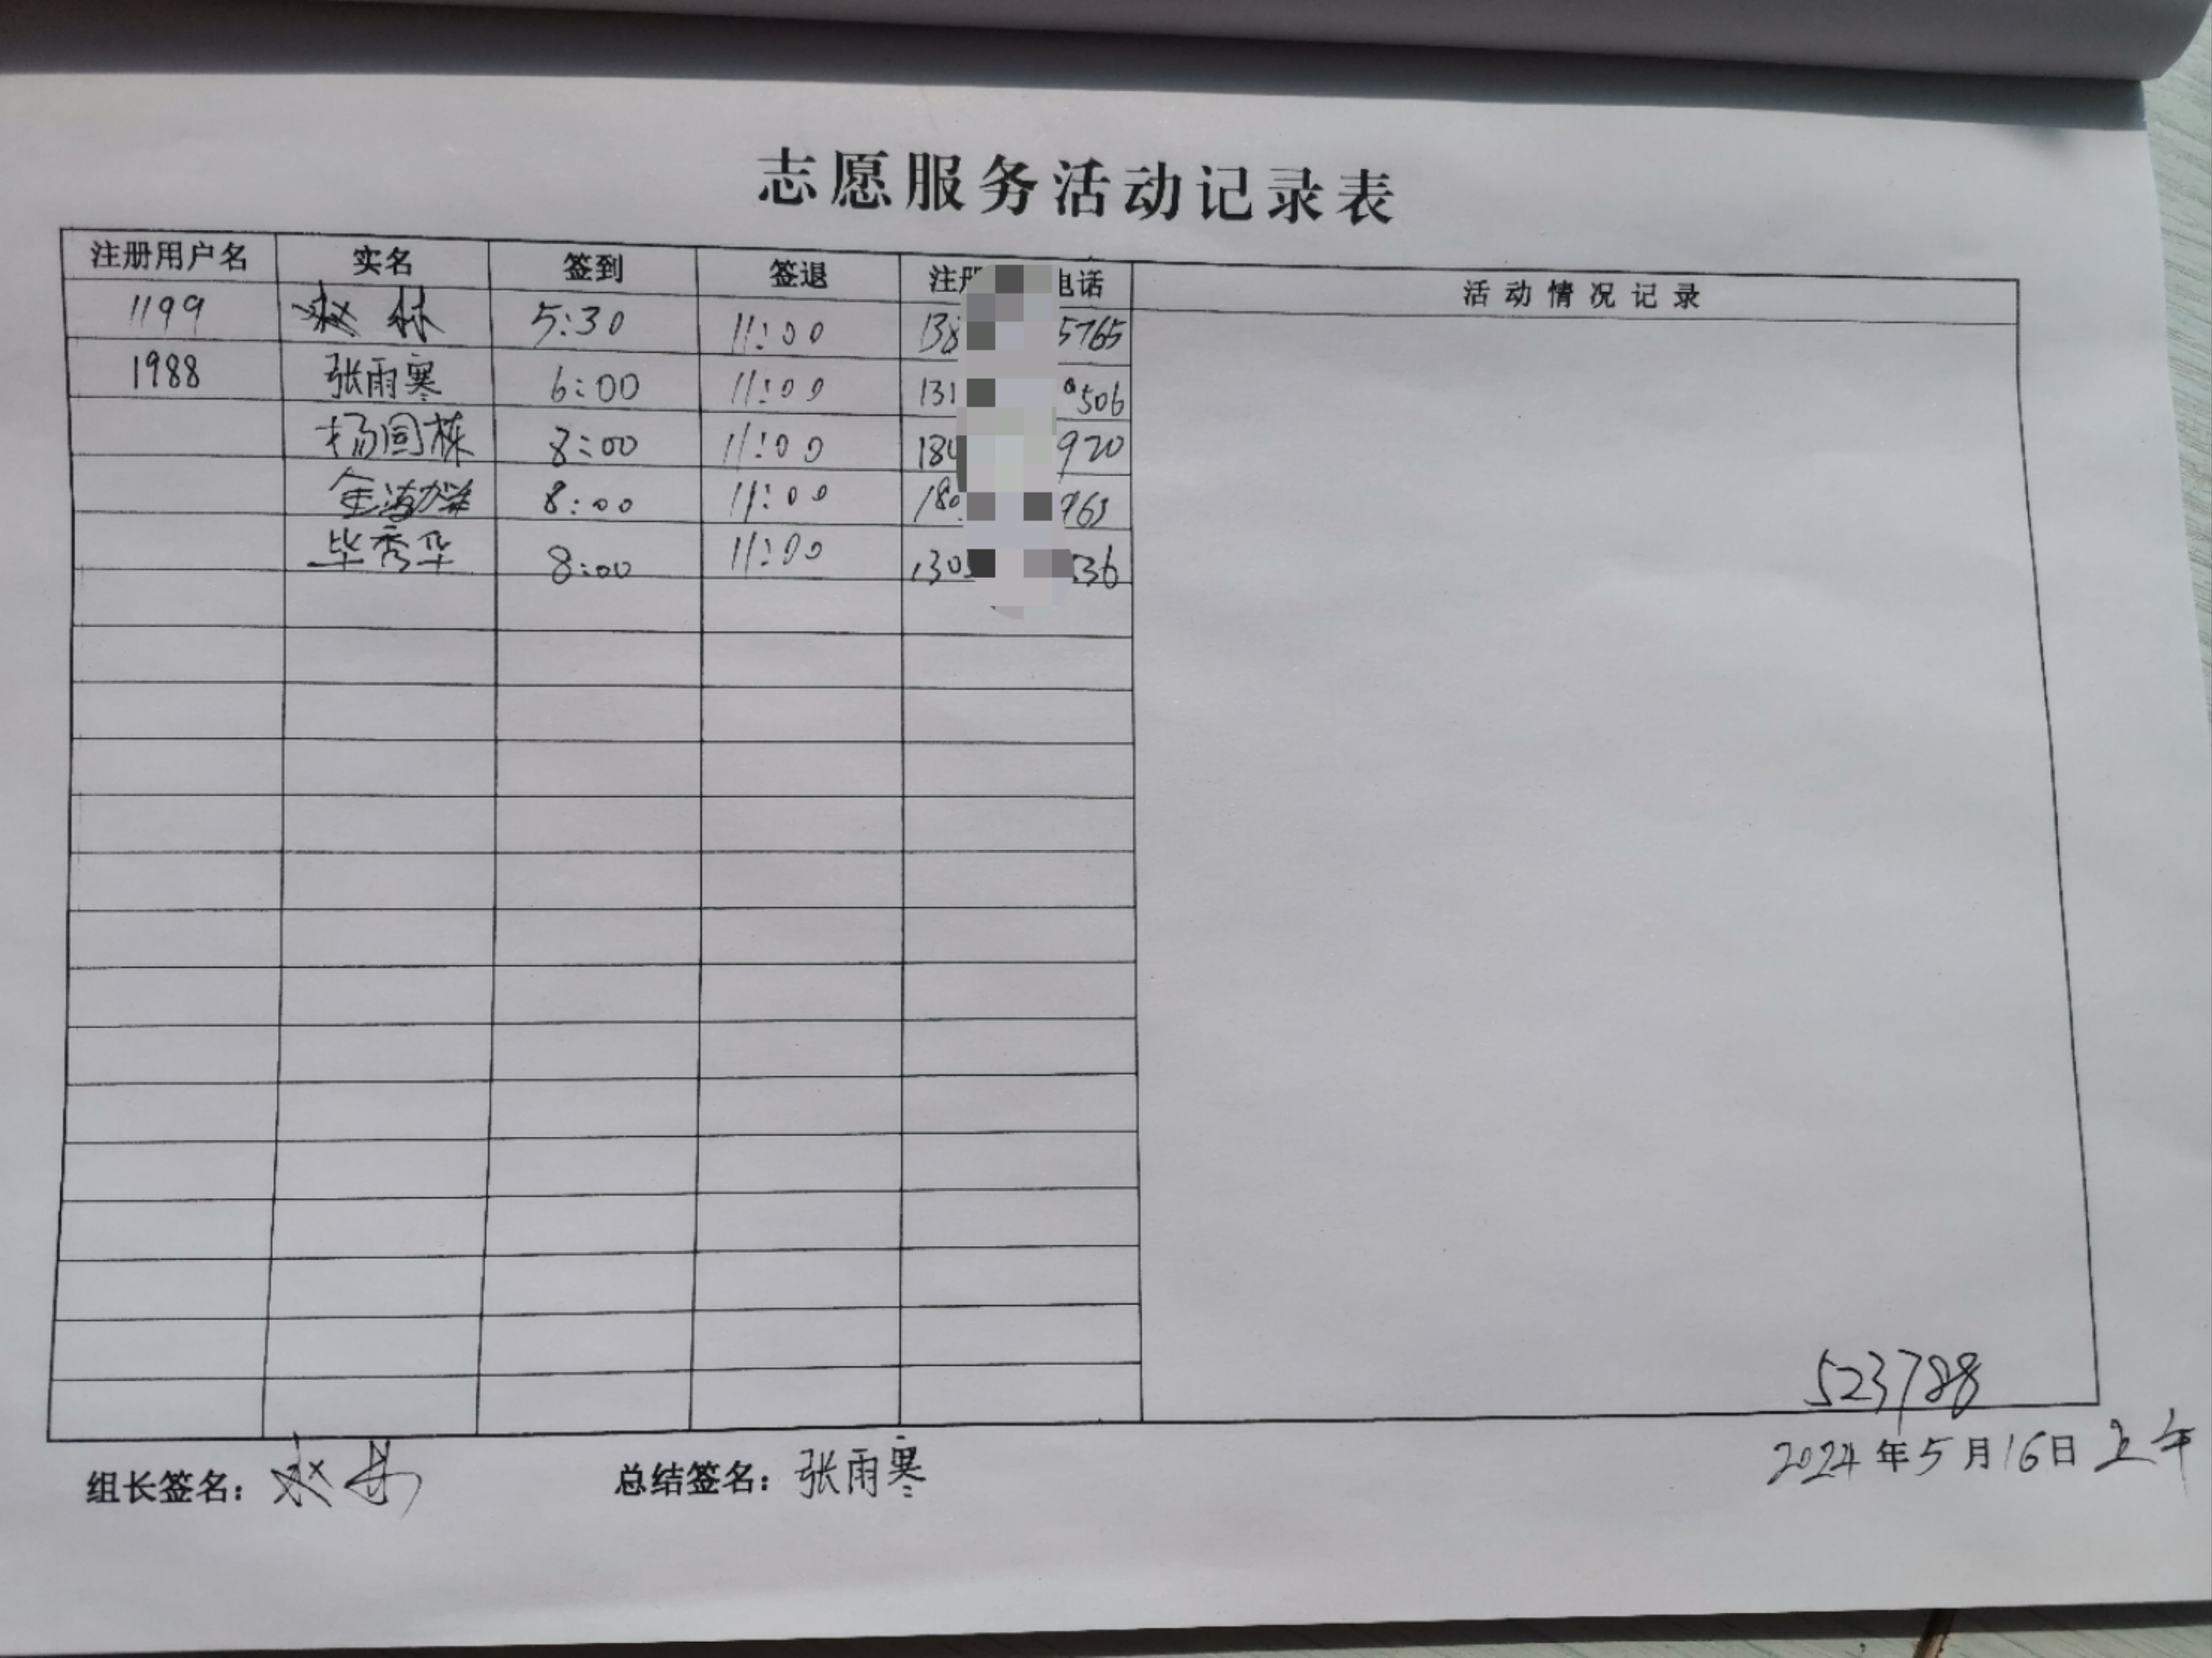 志愿服务活动记录表
注册用户名 实名 签到 签退 注册 电话 活动情况记录
1199 赵 林 5:30 11:00 138 5765
1988 张雨寒 6:00 11:00 131 506
杨国栋 8:00 11:00 180 920
金海群 8:00 11:00 180 963
毕秀华 8:00 11:00 130 536
523788
2024年5月16日上午
组长签名: 赵 总结签名: 张雨寒